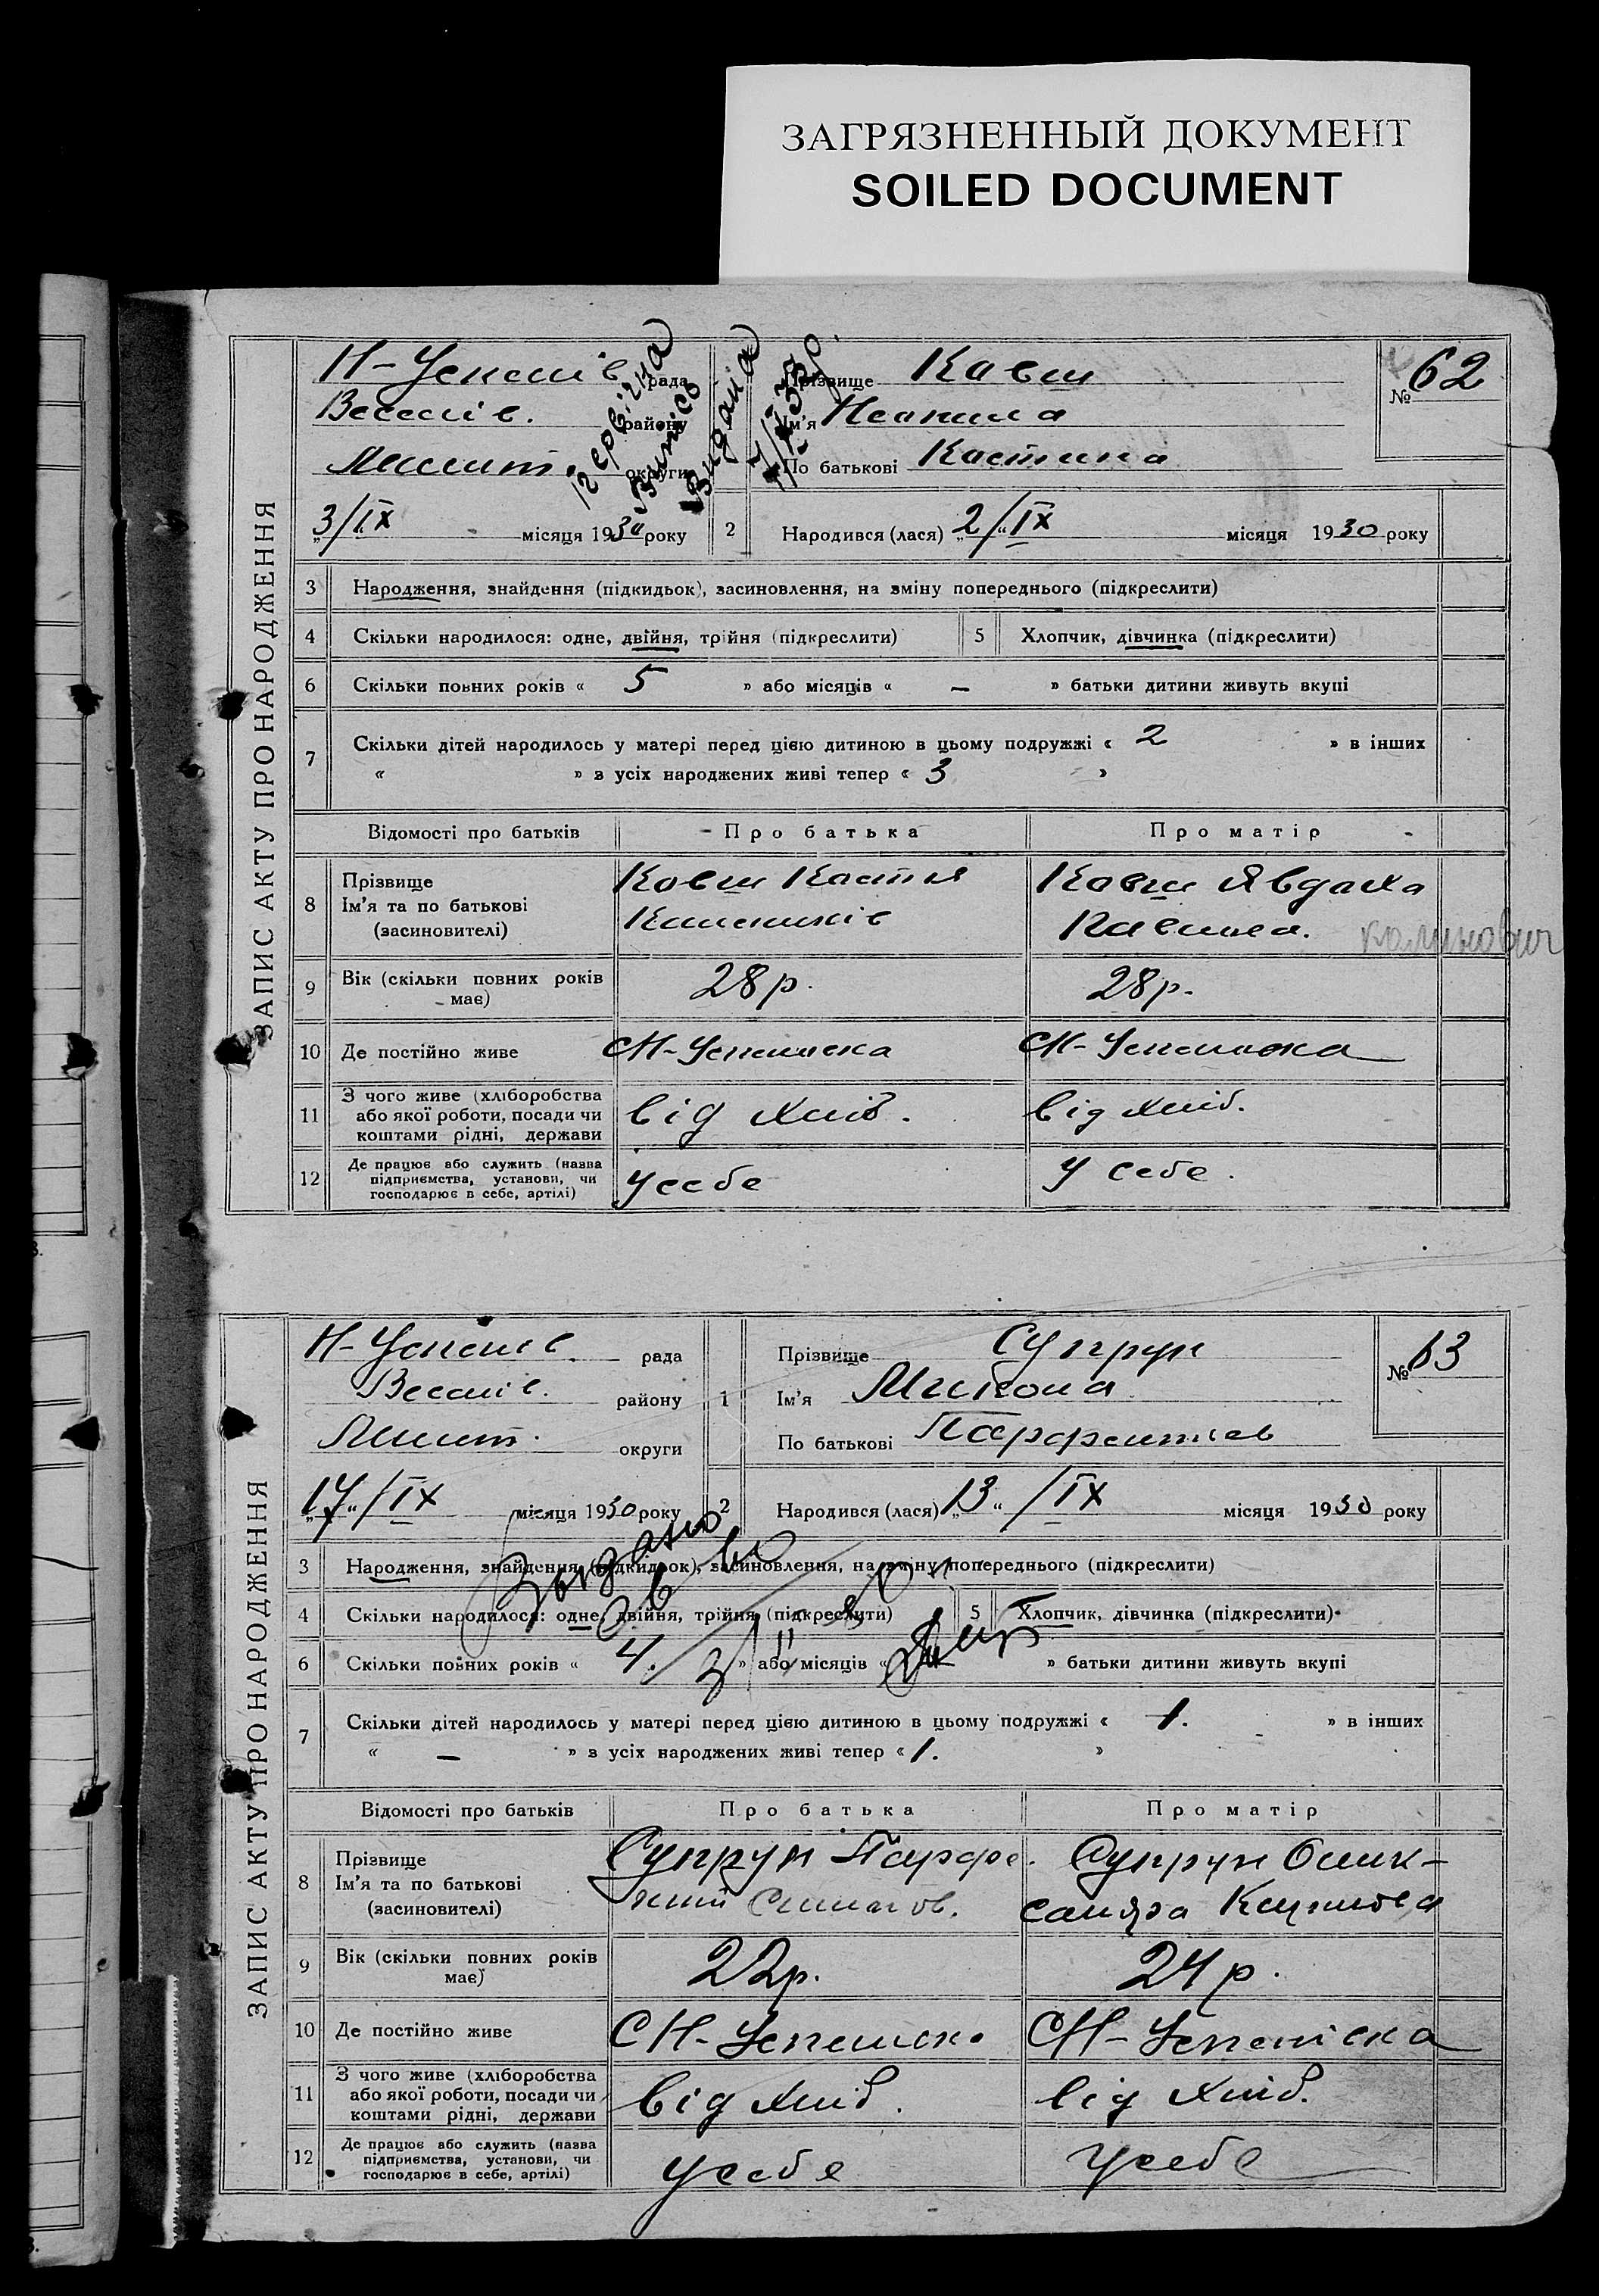 ЗАГРЯЗНЕННЫЙ ДОКУМЕНТ
SOILED DOCUMENT
ЗАПИС АКТУ ПРО НАРОДЖЕННЯ
Н-Успенів рада
Веселів. району
Мелит. округи
"3/IX місяця 1930 року
Первічна
Виписъ
Видана
Прізвище Ковш
Ім'я
По батькові Костика
№ 62
2 Народився (лася) „2/“ IX місяця 1930 року
3 Народження, знайдення (підкидьок), засиновлення, на зміну попереднього (підкреслити)
4 Скільки народилося: одне, двійня, трійня (підкреслити) 5 Хлопчик, дівчинка (підкреслити)
6 Скільки повних років « 5 » або місяців « – » батьки дитини живуть вкупі
7 Скільки дітей народилось у матері перед цією дитиною в цьому подружжі « 2 » в інших
« » з усіх народжених живі тепер « 3 »
Відомості про батьків Про батька Про матір
8 Прізвище Ім'я та по батькові (засиновителі) Ковш Костя Ковш Явдоха
Павлова. калинович
9 Вік (скільки повних років має) 28р. 28р.
10 Де постійно живе СН-Успенівка СН-Успенівка
11 З чого живе (хліборобства або якої роботи, посади чи коштами рідні, держави від хліб. від хліб.
12 Де працює або служить (назва підприємства, установи, чи господарює в себе, артілі) у себе у себе.
ЗАПИС АКТУ ПРО НАРОДЖЕННЯ
Н-Успенів. рада
Веселів. району
Мелит. округи
„17“/IX місяця 1930 року
1 Прізвище Супрун
Ім'я Микола
По батькові Парфентієв
№ 63
2 Народився (лася) „13“ /IX місяця 1930 року
3 Народження, знайдення (підкидьок), засиновлення, на зміну попереднього (підкреслити)
4 Скільки народилося: одне, двійня, трійня (підкреслити) 5 Хлопчик, дівчинка (підкреслити)
6 Скільки повних років « 4. » або місяців « » батьки дитини живуть вкупі
7 Скільки дітей народилось у матері перед цією дитиною в цьому подружжі « 1. » в інших
« – » з усіх народжених живі тепер « 1. »
Відомості про батьків Про батька Про матір
8 Прізвище Ім'я та по батькові (засиновителі) Супрун Парфе- Супрун Олек-
нтий сандра
9 Вік (скільки повних років має) 22р. 24р.
10 Де постійно живе СН-Успенівка СН-Успенівка
11 З чого живе (хліборобства або якої роботи, посади чи коштами рідні, держави від хліб. від хліб.
12 Де працює або служить (назва підприємства, установи, чи господарює в себе, артілі) у себе у себе